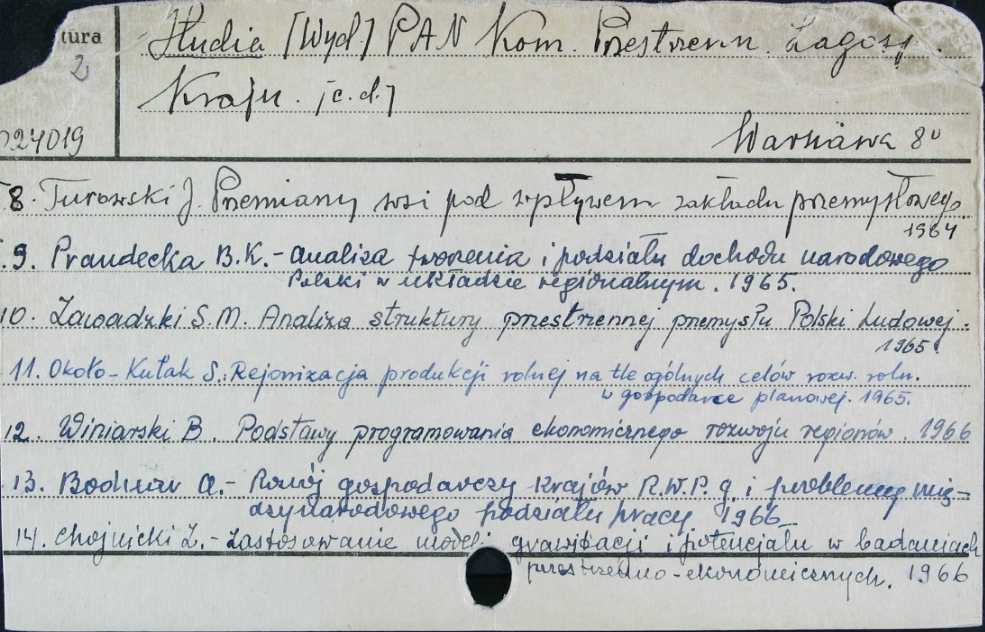 tura
2
Studia [Wyd.] PAN Kom. Przestrzenn. Zagosp.
Kraju. [c.d.]
24019
Warszawa 8°
8. Turowski J. Przemiany wsi pod wpływem zakładu przemysłowego.
1964
9. Prandecka B.K. - Analiza tworzenia i podziału dochodu narodowego
Polski w układzie regionalnym. 1965.
10. Zawadzki S.M. Analiza struktury przestrzennej przemysłu Polski Ludowej.
1965.
11. Około-Kułak S.: Rejonizacja produkcji rolnej na tle ogólnych celów rozw. roln.
w gospodarce planowej. 1965.
12. Winiarski B. Podstawy programowania ekonomicznego rozwoju regionów. 1966
13. Bodnar A. - Rozwój gospodarczy krajów R.W.P.g. i problemy mię-
dzynarodowego podziału pracy 1966
14. Chojnicki Z. - Zastosowanie modeli grawitacji i potencjału w badaniach
przestrzenno-ekonomicznych. 1966